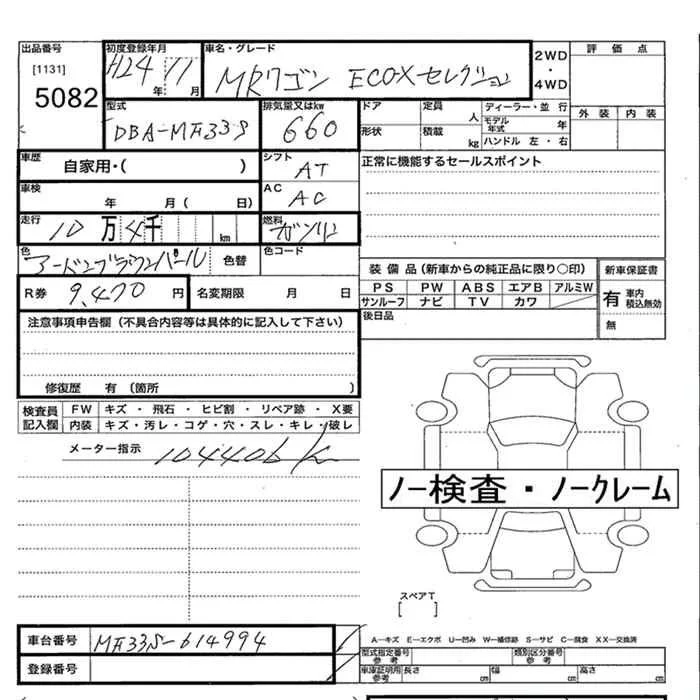 出品番号 初度登録年月 車名・グレード 2WD・4WD 評価点
[1131] H24年 11月 MRワゴン ECO-Xセレクション
5082 外装 内装
型式 排気量又はkw ドア 定員 人 ディーラー・並 行
DBA-MF33S 660 モデル年式 年
形状 積載 kg ハンドル 左・右
車歴 自家用・( ) シフト AT 正常に機能するセールスポイント
車検 年 月( 日) AC AC
走行 10万4千 km 燃料 ガソリン
色 色替 色コード
装備品(新車からの純正品に限り○印) 新車保証書
R券 9,470円 名変期限 月 日 PS PW ABS エアB アルミW 有 車内積込無効
サンルーフ ナビ TV カワ 無
注意事項申告欄(不具合内容等は具体的に記入して下さい) 後日品
修復歴 有(箇所 )
検査員記入欄 FW キズ・飛石・ヒビ割・リペア跡・X要
内装 キズ・汚レ・コゲ・穴・スレ・キレ・破レ
メーター指示 104406k
ノー検査・ノークレーム
スペアT
[ ]
車台番号 MF33S-614994 A―キズ E―エクボ U―凹み W―補修跡 S―サビ C―腐食 XX―交換済
型式指定番号 参考 類別区分番号 参考
登録番号 車庫証明用 参考 長さ cm 幅 cm 高さ cm